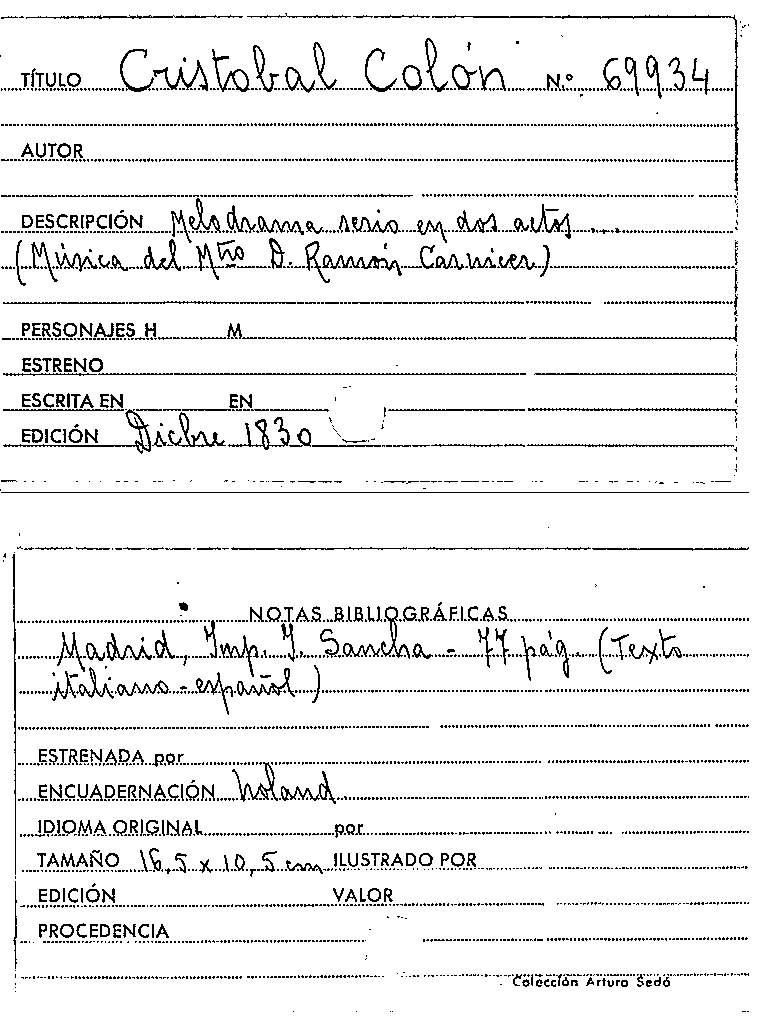 TÍTULO Cristobal Colón N.º 69934
AUTOR
DESCRIPCIÓN Melodrama serio en dos actos...
(Música del Mtro D. Ramón Carnicer)
PERSONAJES H M
ESTRENO
ESCRITA EN EN
EDICIÓN Dicbre 1830
NOTAS BIBLIOGRÁFICAS
Madrid, Imp. J. Sancha - 77 pág. (Texto
italiano-español)
ESTRENADA por
ENCUADERNACIÓN holand.
IDIOMA ORIGINAL por
TAMAÑO 16,5 x 10,5 cm ILUSTRADO POR
EDICIÓN VALOR
PROCEDENCIA
Colección Arturo Sedó